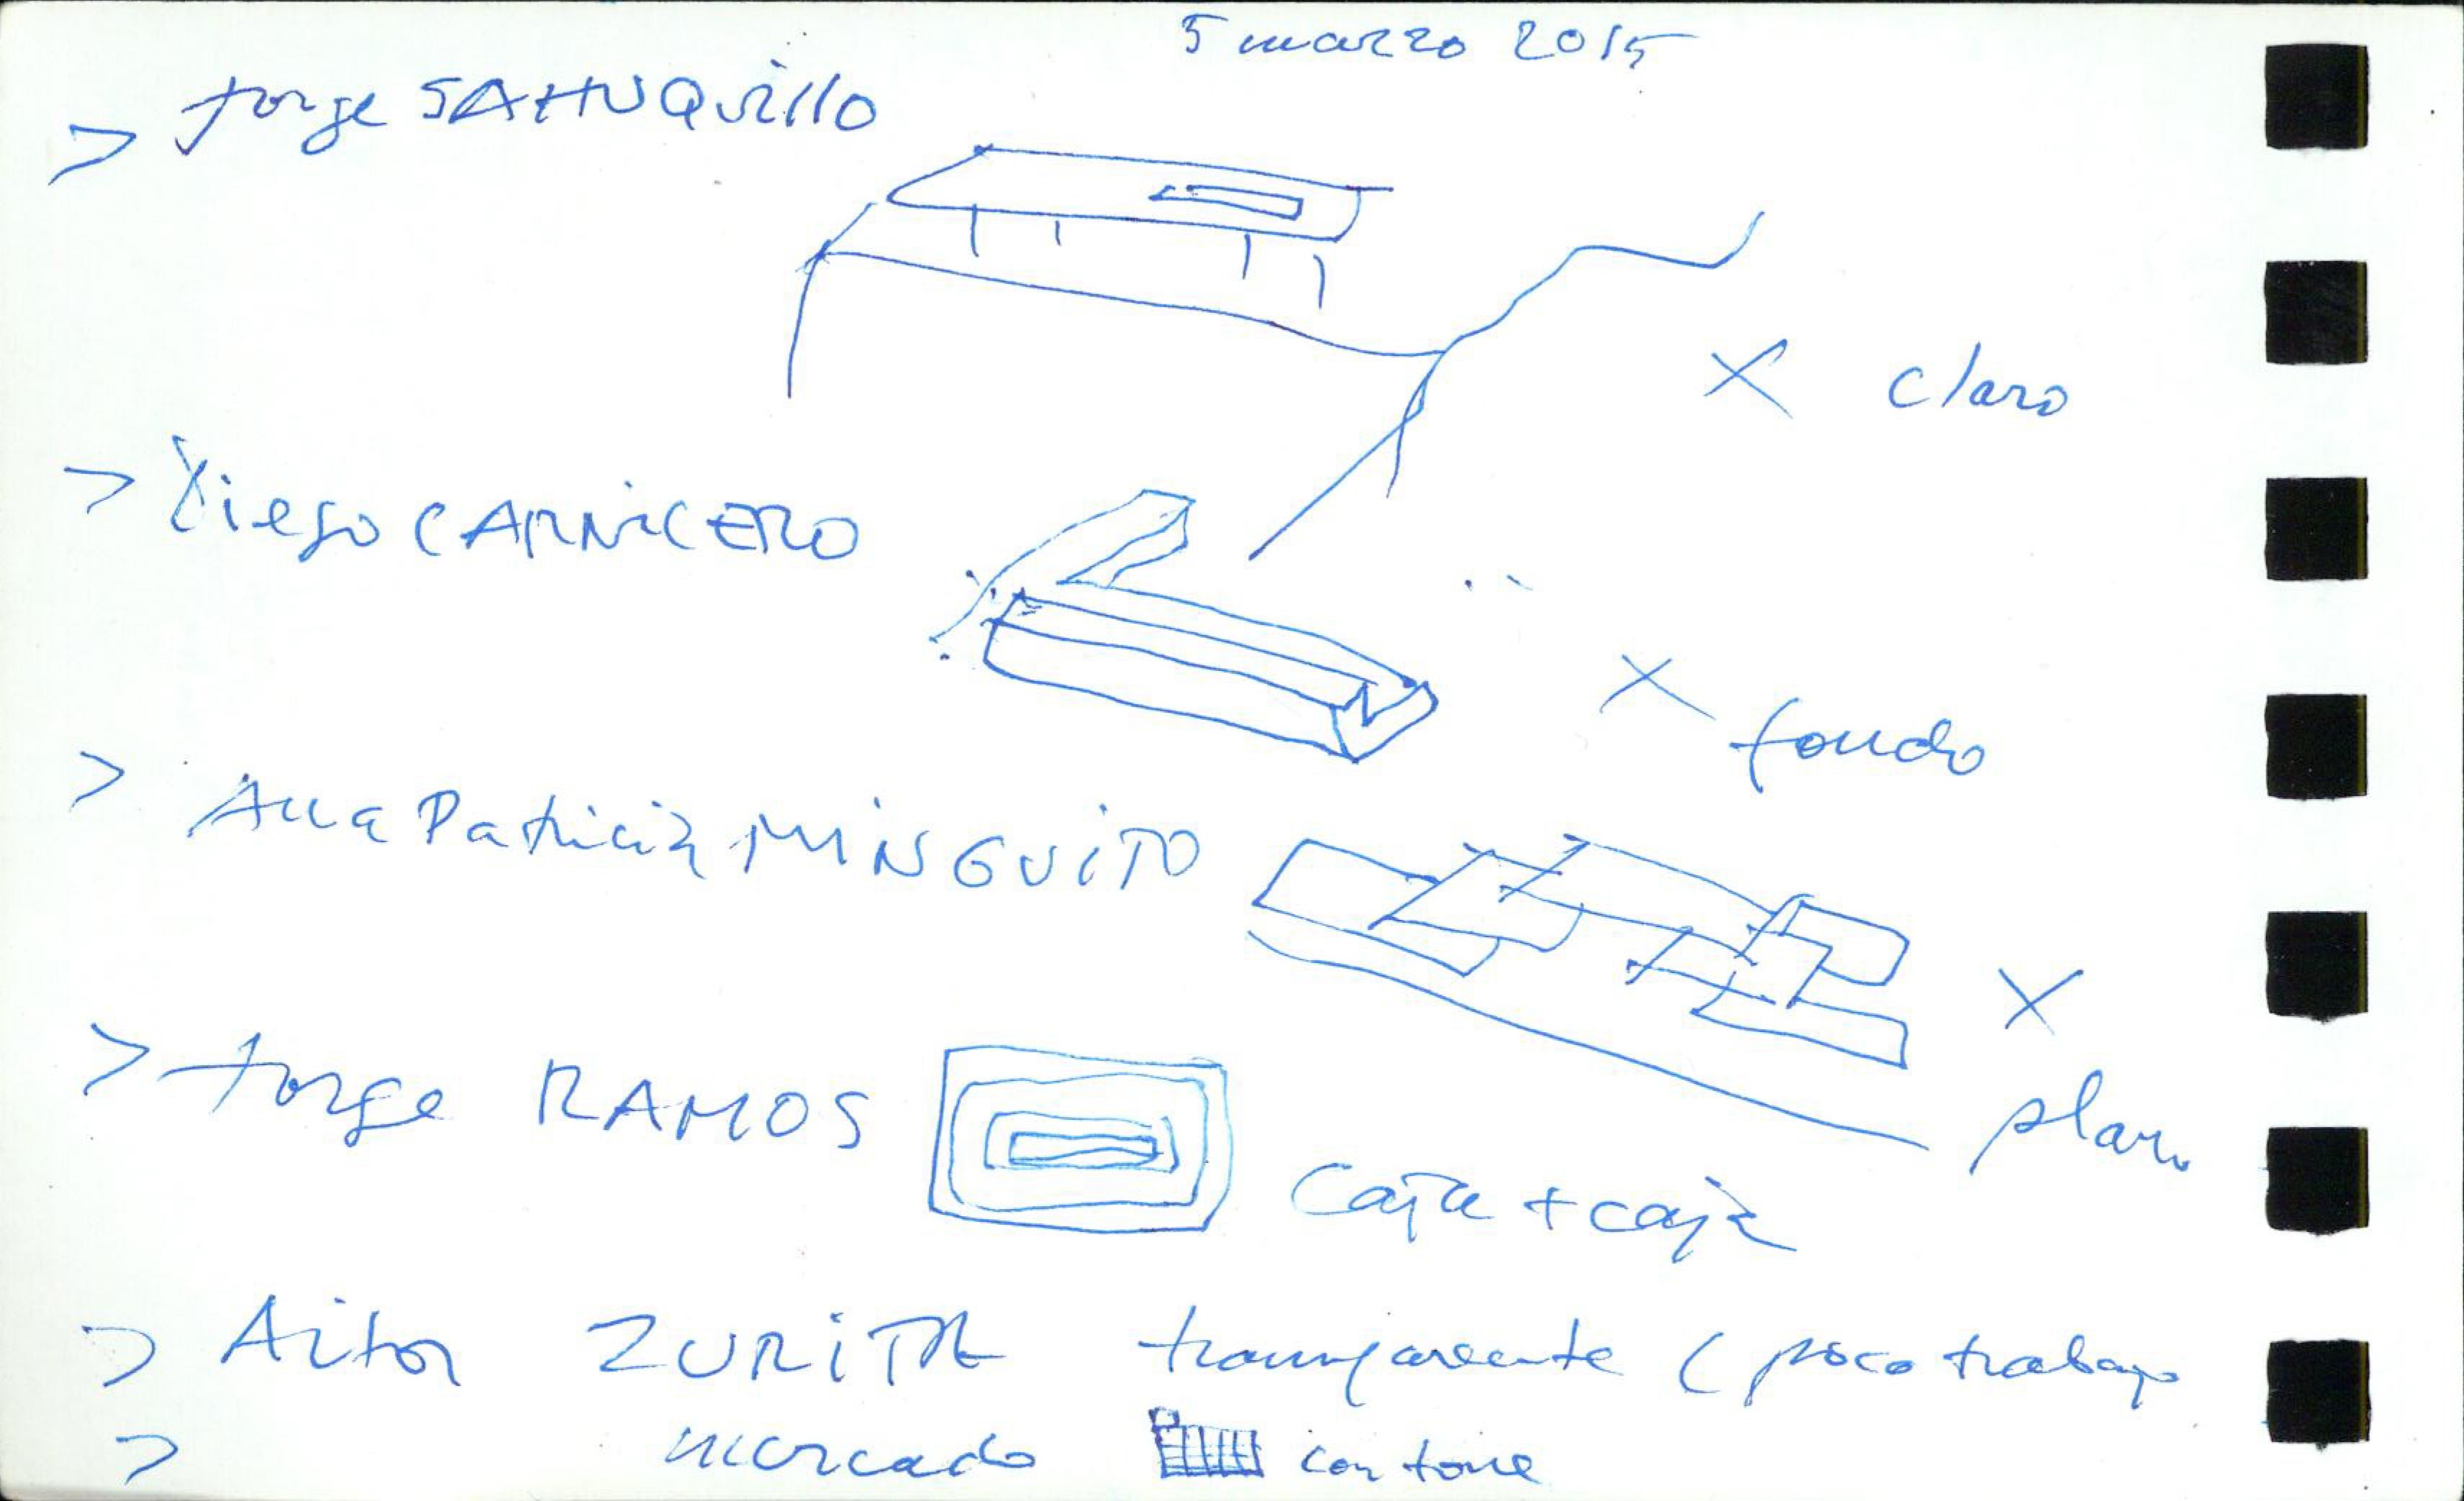 5 marzo 2015
> Jorge SAHUQUillo
X claro
> Diego CARNICERO
X fondo
> Ana Patricia MINGUITO
X
plano
> Jorge RAMOS
caja + caja
> Aitor ZURITA transparente ( poco trabajo
> mercado con torre